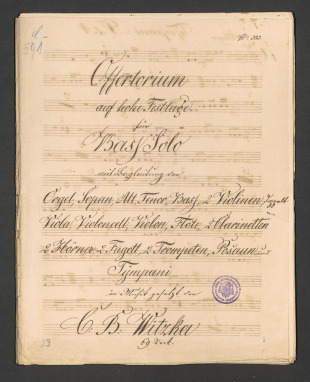 Offertorium
auf hohe Festtage
für
Bass Solo
mit Begleitung von
Orgel, Sopan, Alt Tenor, Bass, 2 Violinen
Viola Violoncell, Violon, Flöte, 2 Clarinetten
2 Hörner 2 Fagott, 2 Trompeten, Posaun und
Tympani
in Musik gesetzt von
C. B. Witzka
69 Werk.